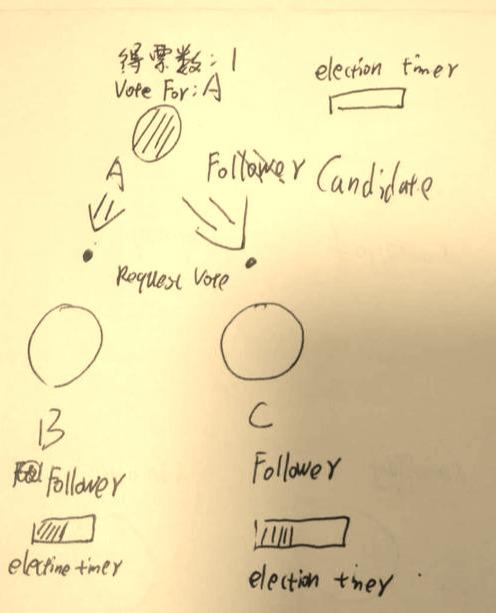 得票数: 1
Vote For: A
election timer
A
Follower Candidate
Request Vote
B
C
Follower
Follower
electine timer
election timer